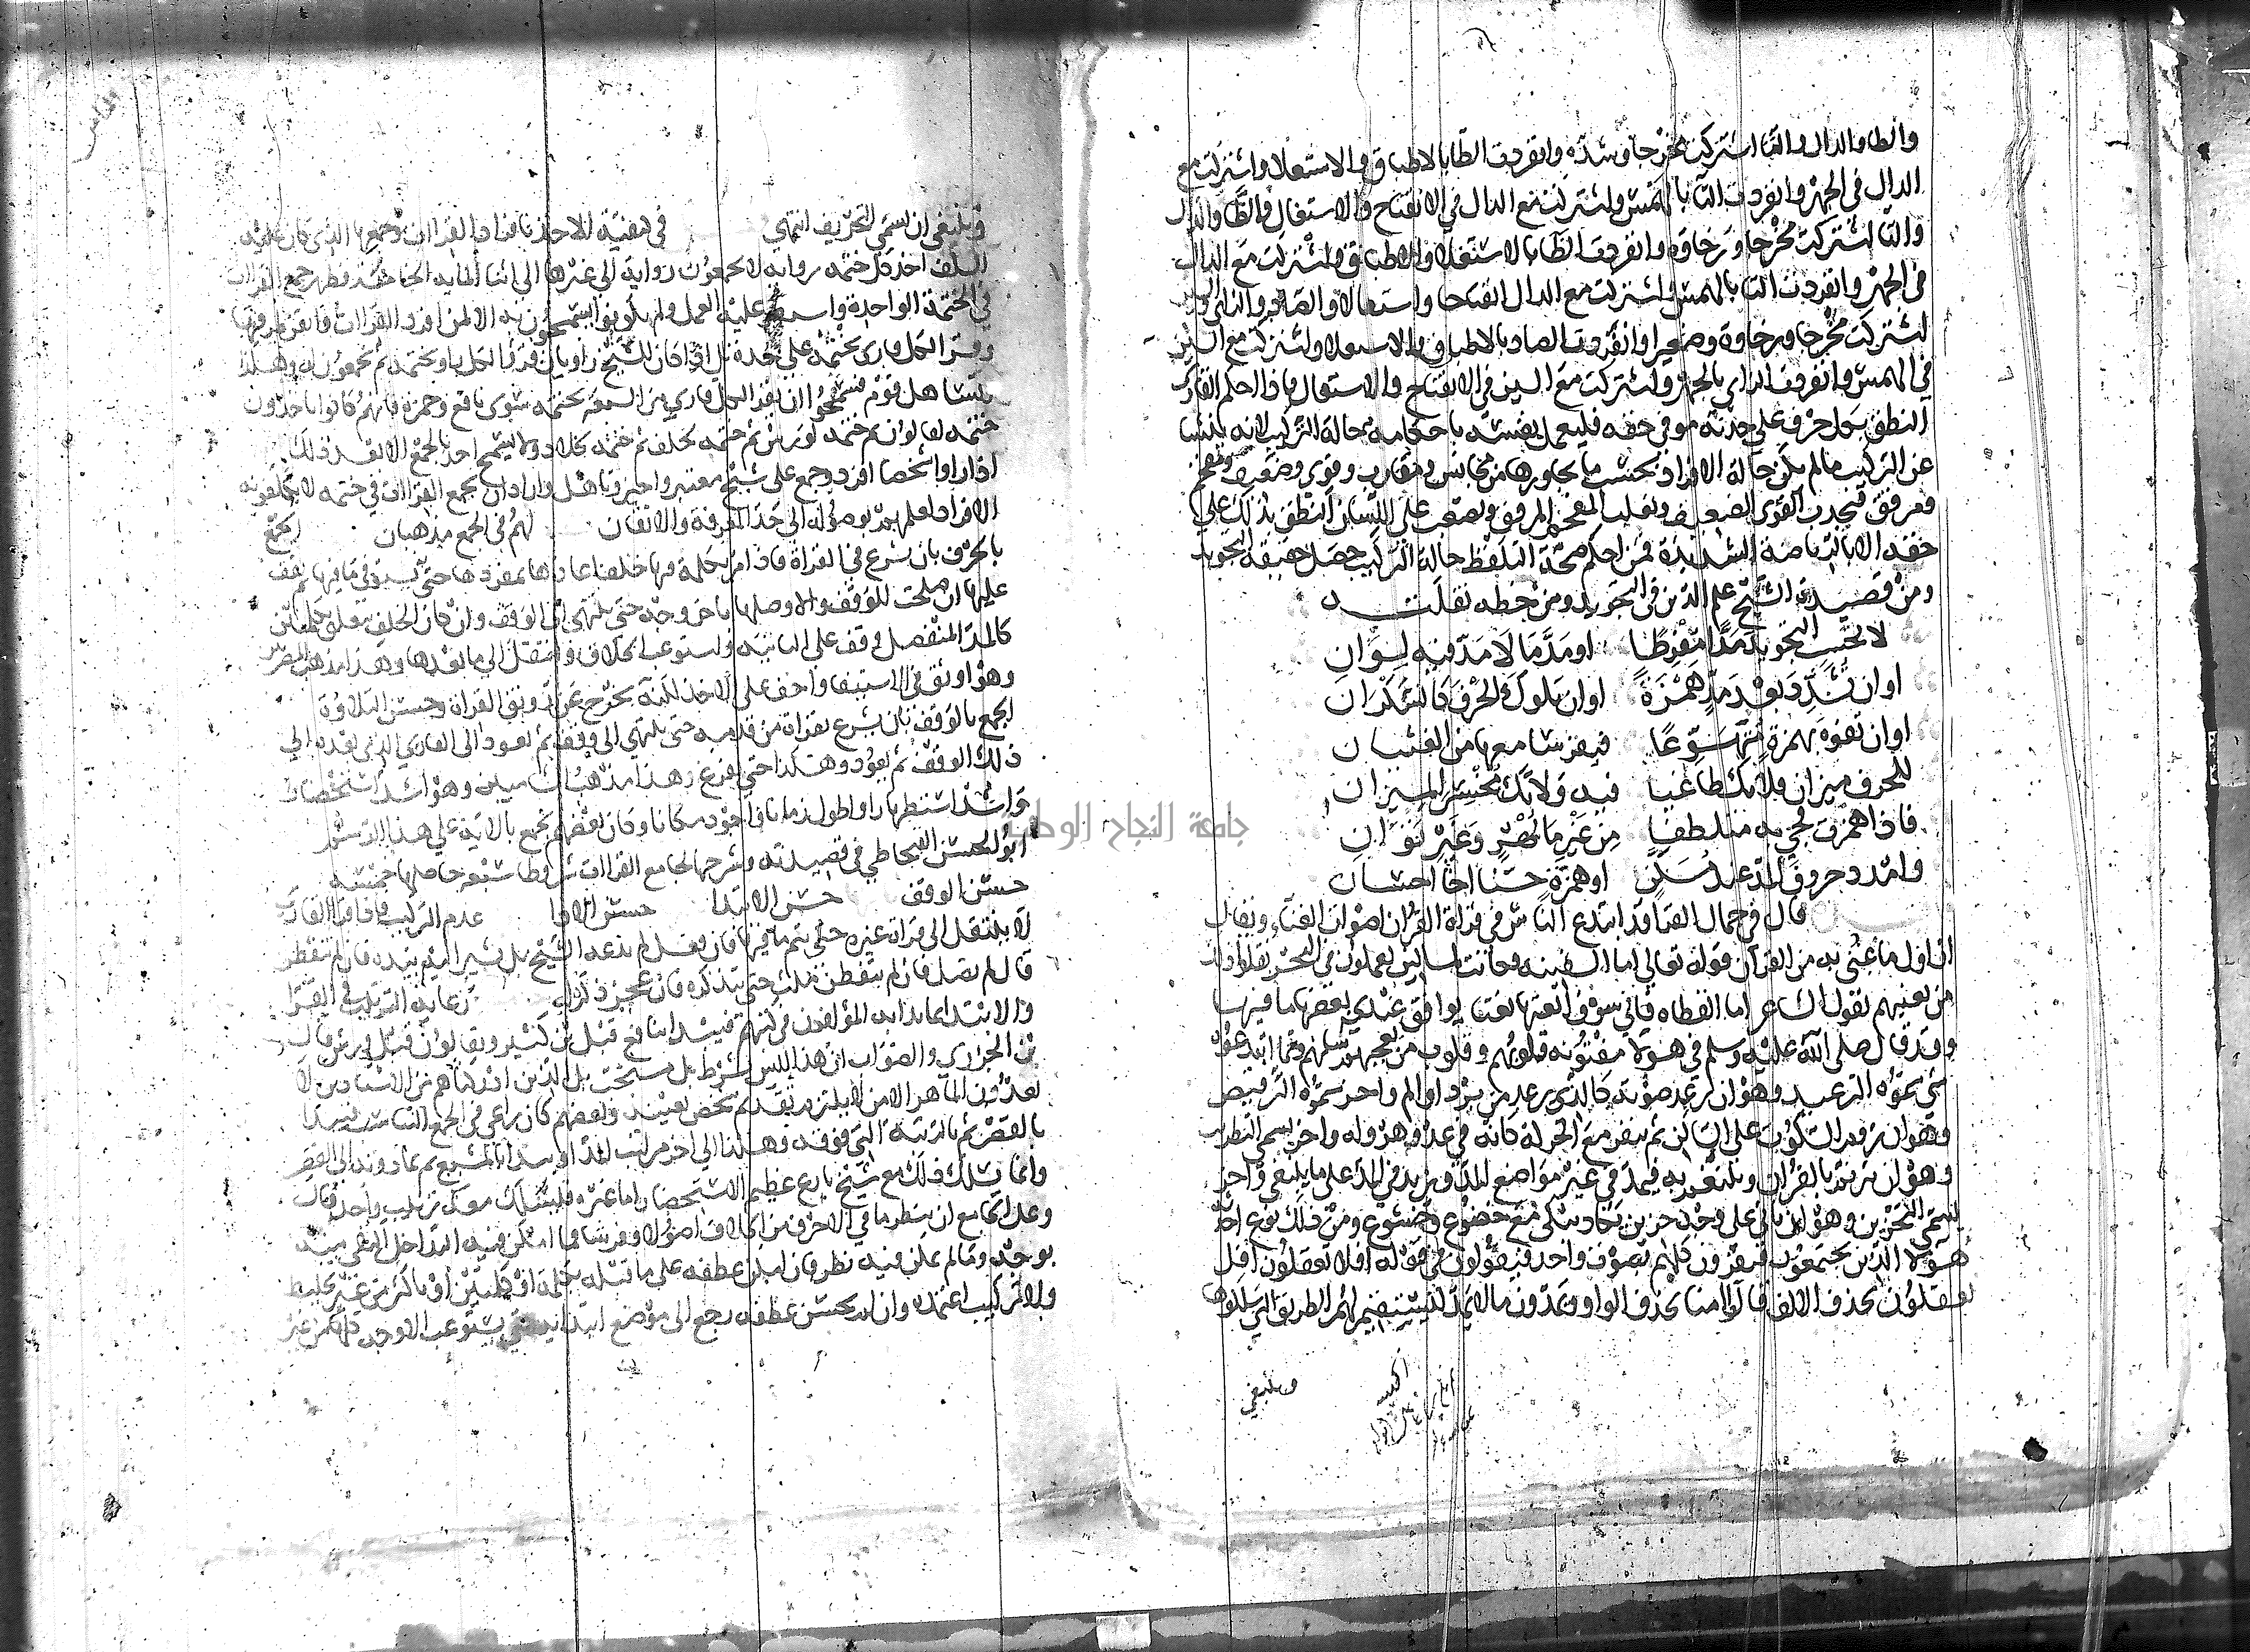 والطا والدال والتا اشتركت مخرجا وشدة وانفردت الطا بالاطباق والاستعلا واشتركت مع
الدال في الجهر وانفردت التا بالهمس واشتركت مع الدال في الانفتاح والاستفال والظا والذال
والثا اشتركت مخرجا ورخاوة وانفردت الظا بالاستعلا والاطباق واشتركت مع الذال
في الجهر وانفردت الثا بالهمس واشتركت مع الذال انفتاحا واستفالا والصاد والزاي والسين
اشتركت مخرجا ورخاوة وصفيرا وانفردت الصاد بالاطباق والاستعلا واشتركت مع السين
في الهمس وانفردت الزاي بالجهر واشتركت مع السين في الانفتاح والاستفال فاذا احكم القاري
النطق بكل حرف على حدته موفى حقه فليعمل نفسه باحكامه حالة التركيب لانه ينشا
عن التركيب ما لم يكن حالة الافراد بحسب ما يجاورها من مجانس ومقارب وقوي وضعيف ومفخم
ومرقق فيجذب القوي الضعيف ويغلب المفخم المرقق ويصعب على اللسان النطق بذلك على
حقه الا بالرياضة الشديدة فمن احكم صحة التلفظ حالة التركيب حصل حقيقة التجويد
ومن قصيدة الشيخ علم الدين في التجويد ومن خطه نقلت
لا تحسب التجويد مدا مفرطا او مد ما لا مد فيه لوان
او ان تشدد بعد مد همزة او ان تلوك الحرف كالسكران
او ان تفوه بهمزة متهوعا فيفر سامعها من الغثيان
للحرف ميزان فلا تك طاغيا فيه ولا تك مخسر الميزان
فاذا همزت فجي به متلطفا من غير ما بهر وغير توان
وامدد حروف المد عند مسكن او همزة حسنا اخا احسان
قال في جمال القرا قد ابتدع الناس في قراة القران اصوات الغنا ويقال
ان اول ما غني به من القران قوله تعالى اما السفينة فكانت لمساكين يعملون في البحر نقلوا ذلك
من تغنيهم بقول الشاعر اما القطاه فاني سوف انعتها نعتا يوافق عندي بعض ما فيها
وقد قال صلى الله عليه وسلم في هولا مفتونه قلوبهم وقلوب من يعجبهم شانهم ومما ابتدعوه
شي سموه الترعيد وهو ان يرعد صوته كالذي يرعد من برد او الم واخر سموه الترقيص
وهو ان يروم السكوت على الساكن ثم ينفر مع الحركة كانه في عدو وهروله واخر يسمى التطريب
وهو ان يترنم بالقران ويتنغم به فيمد في غير مواضع المد ويزيد في المد على ما ينبغي واخر
يسمى التحزين وهو ان ياتي على وجه حزين يكاد يبكي مع خضوع وخشوع ومن ذلك نوع احدثه
هولا الذين يجتمعون فيقرون كلهم بصوت واحد فيقولون في قوله افلا تعقلون افل
تعقلون بحذف الالف قال امنا بحذف الواو ويمدون ما لا يمد ليستقيم لهم الطريق التي سلكوها
وينبغي
وينبغي ان يسمى التحريف انتهى في كيفية الاخذ بافراد القراات وجمعها الذي كان عليه
السلف اخذ كل ختمه برواية لا يجمعون رواية الى غيرها الى اثنا الماية الخامسة فظهر جمع القراات
في الختمة الواحدة واستقر عليه العمل ولم يكونوا يسمحون به الا لمن افرد القراات واتقن طرقها
وقرا لكل قاري بختمة على حدة بل اذا كان للشيخ راويان قروا لكل راو بختمة ثم يجمعون له وهكذا
وتساهل قوم فسمحوا ان يقرا لكل قاري من السبعة بختمة سوى نافع وحمزة فانهم كانوا ياخذون
ختمة لقالون ثم ختمة لورش ثم ختمة لخلف ثم ختمة لخلاد ولا يسمح احد بالجمع الا بعد ذلك
اذا راوا شخصا افرد وجمع على شيخ معتبر واجيز وتاهل واراد ان يجمع القراات في ختمة لا يكلفونه
الافراد لعلمهم بوصوله الى حد المعرفة والاتقان لهم في الجمع مذهبان الجمع
بالحرف بان يشرع في القراة فاذا مر بكلمة فيها خلف اعادها بمفردها حتى يستوفي ما فيها ثم يقف
عليها ان صلحت للوقف والا وصلها باخر وجه حتى ينتهي الى الوقف وان كان الخلف يتعلق بكلمتين
كالمد المنفصل وقف على الثانية واستوعب الخلاف وانتقل الى ما بعدها وهذا مذهب المصريين
وهو اوثق في الاستيفا واخف على الاخذ لكنه يخرج عن رونق القراة وحسن التلاوة
الجمع بالوقف بان يشرع بقراة من قدمه حتى ينتهي الى وقف ثم يعود الى القاري الذي بعده الى
ذلك الوقف ثم يعود وهكذا حتى يفرغ وهذا مذهب الشاميين وهو اشد استحضارا
واشد استظهارا واطول زمانا واجود مكانا وكان بعضهم يجمع بالاية على هذا الرسم
ابو الحسن القيجاطي في قصيدته وشرحها لجامع القراات شروطا سبعة حاصلها خمسة
حسن الوقف حسن الابتدا حسن الادا عدم التركيب فاذا قرا لقاري
لا ينتقل الى قراة غيره حتى يتم ما فيها فان فعل لم يدعه الشيخ بل يشير اليه بيده فان لم يتفطن
قال لم تصل فان لم يتفطن مكث حتى يتذكر فان عجز ذكر له رعاية الترتيب في القراة
والابتدا بما بدا به المؤلفون في كتبهم فيبدا بنافع قبل بن كثير وبقالون قبل ورش قال
بن الجزري والصواب ان هذا ليس بشرط بل مستحب بل الذين ادركناهم من الاستاذين لا
يعدون الماهر الا من لا يلتزم تقديم شخص بعينه وبعضهم كان يراعي في الجمع التناسب فيبدا
بالقصر ثم بالرتبة التي فوقه وهكذا الى اخر مراتب المد او يبدا بالمشبع ثم بما دونه الى القصر
وانما يسلك ذلك مع شيخ بارع عظيم الاستحضار اما غيره فليسلك معه ترتيب واحد قال
وعلى الجامع ان ينظر ما في الاحرف من الخلاف اصولا وفرشا فما امكن فيه التداخل اكتفي منه
بوجه وما لم يمكن فيه نظر فان امكن عطفه على ما قبله بكلمة او كلمتين او باكثر من غير تخليط
ولا تركيب اعتمده وان لم يحسن عطفه رجع الى موضع ابتدا به حتى يستوعب الاوجه كلها من غير
جامعة النجاح الوطنية